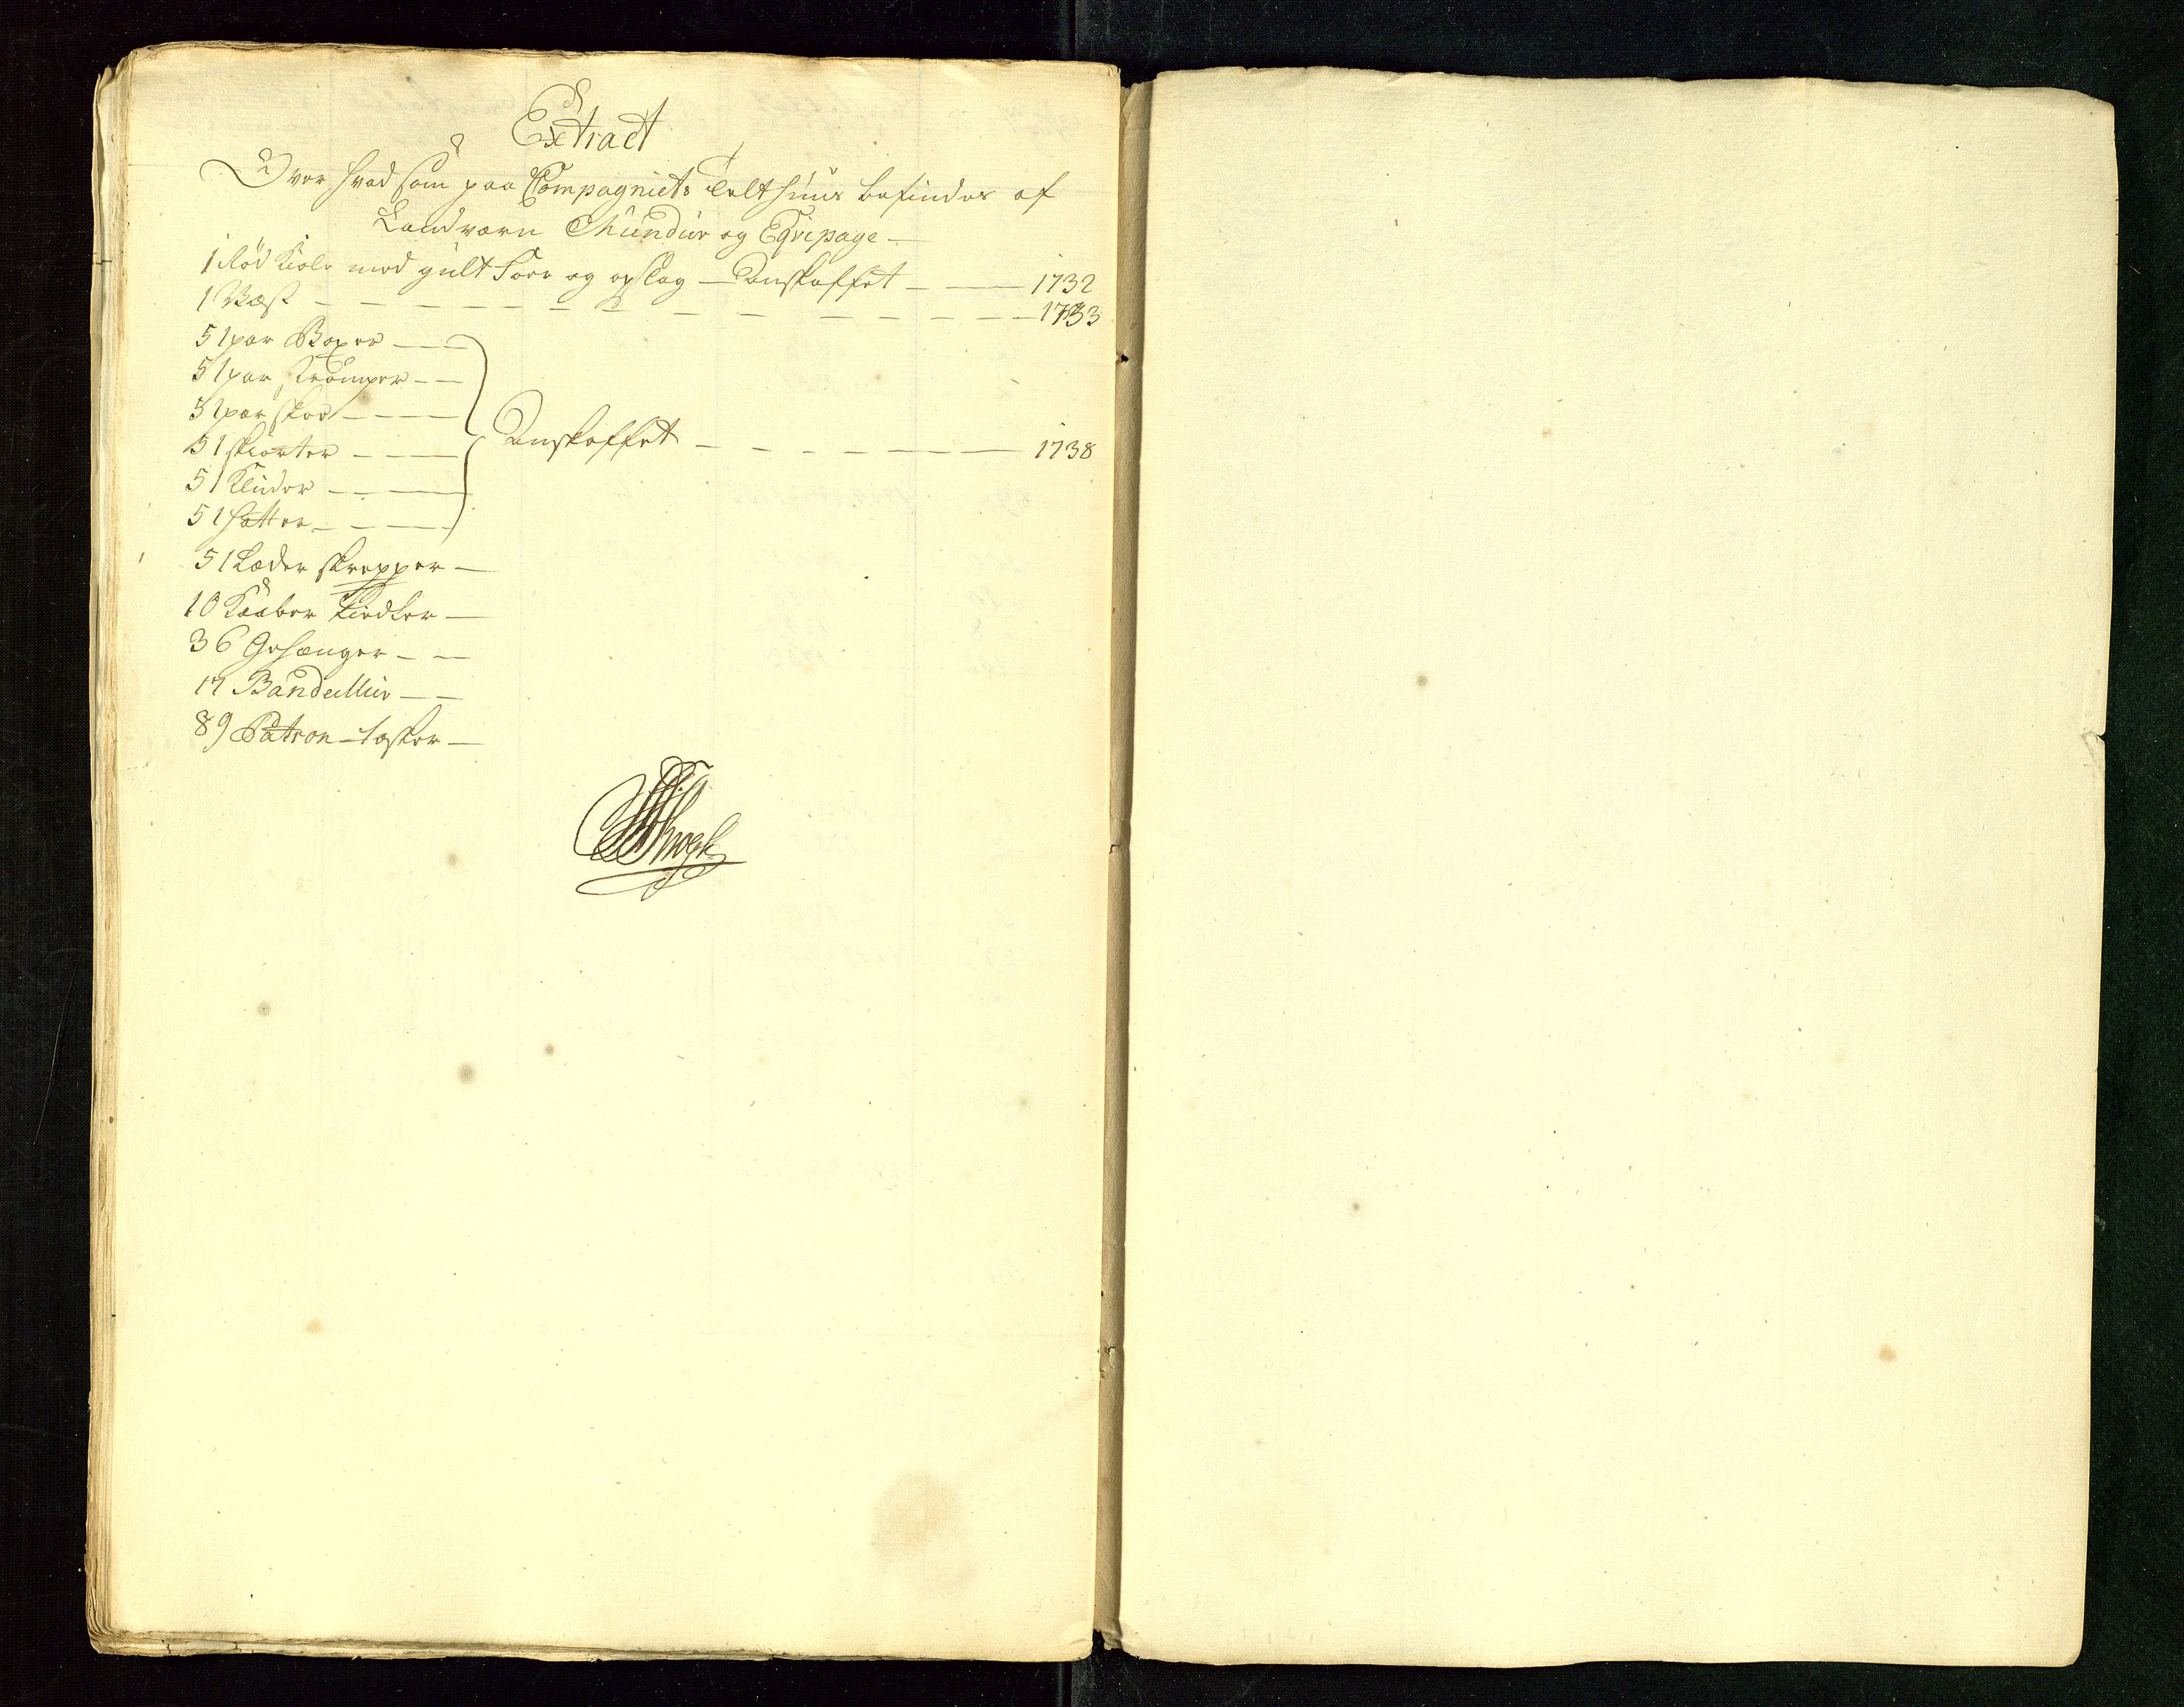 Extract
Over hvad som paa Compagniets Telthuus befindes af
Landværn Mundur og Eqvipage —
1 Rød Kiole med gult Foer og opslag — Anskaffet — — — 1732
1 Væst — — — — — — — — — — — — 1733
51 par Boxer — — —
51 par Strömper — —
51 par skoe — — —
51 skiorter — — — Anskaffet — — — — — — 1738
51 Kluder — — —
51 Hatter — — —
51 Læder skrepper —
10 Kaaber Kiedler —
36 Gehænger — —
17 Bandellür — —
89 Patron-tasker —